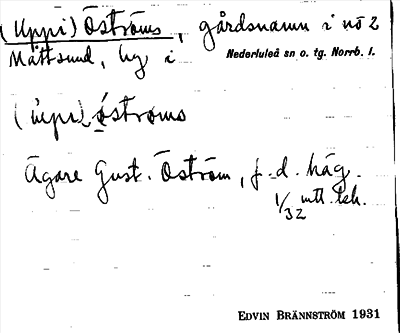 (Uppi) Öströms, gårdsnamn i nö 2
Måttsund, by i Nederluleå sn o. tg. Norrb. l.
(ùpi) óstroms
Ägare Gust. Öström, f.d. häg.
1/32 mtl. tsk.
EDVIN BRÄNNSTRÖM 1931